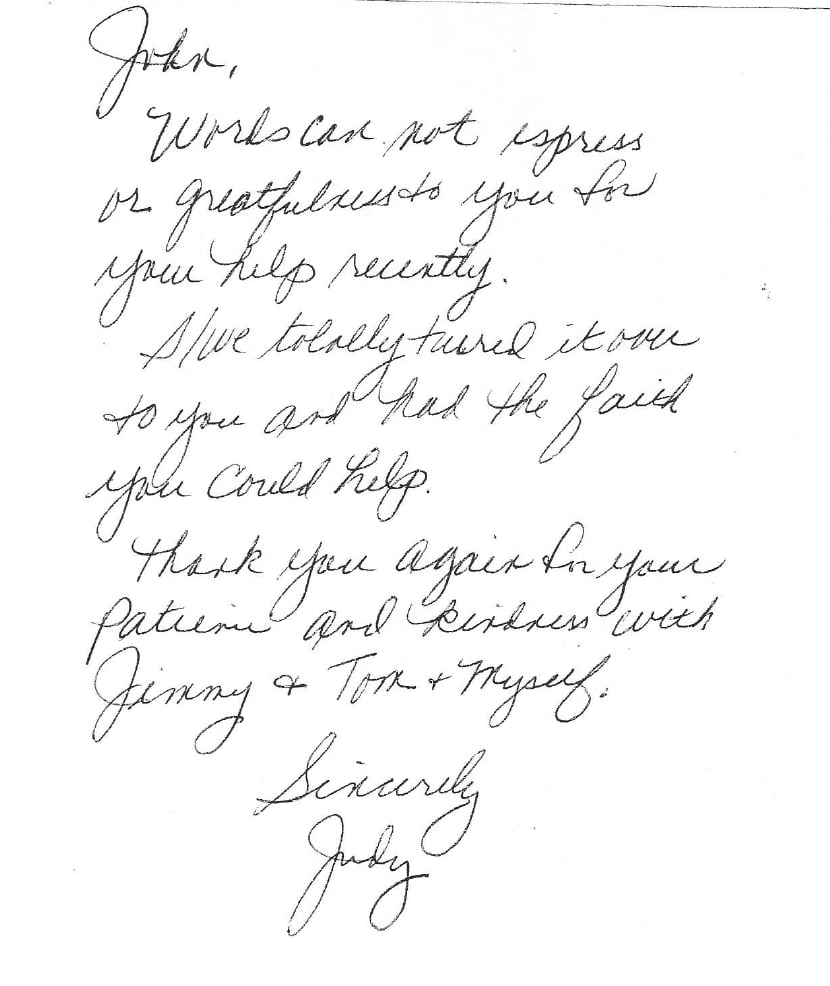 John,
Words can not express
or greatfulness to you for
your help recently.
I/we totally turned it over
to you and had the faith
you could help.
Thank you again for your
Patience and kindness with
Jimmy & Tom + Myself.
Sincerely
Judy